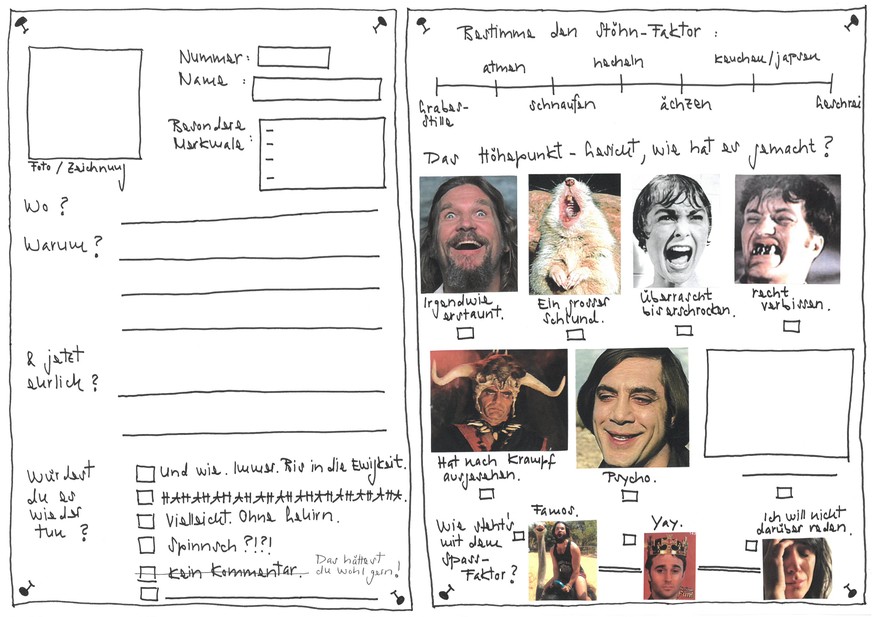 Nummer:
Name :
Besondere
Merkmale :
Foto / Zeichnung
Wo ?
Warum ?
& jetzt
ehrlich ?
Würdest
du es
wieder
tun ?
Und wie. Immer. Bis in die Ewigkeit.
HAHAHAHAHAHAHAHAHAHAHAHAHA.
Vielleicht. Ohne Gehirn.
Spinnsch ?!?!
Kein Kommentar.
Das hättest
du wohl gern!
Bestimme den Stöhn-Faktor :
atmen
hecheln
keuchen/japsen
Grabes-
stille
schnaufen
ächzen
Geschrei
Das Höhepunkt-Gesicht, wie hat es gemacht ?
Irgendwie
erstaunt.
Ein grosser
Schlund.
Überrascht
bis erschrocken.
recht
verbissen.
Hat nach Krampf
ausgesehen.
Psycho.
Wie steht's
mit dem
Spass-
Faktor ?
Famos.
Yay.
Ich will nicht
darüber reden.